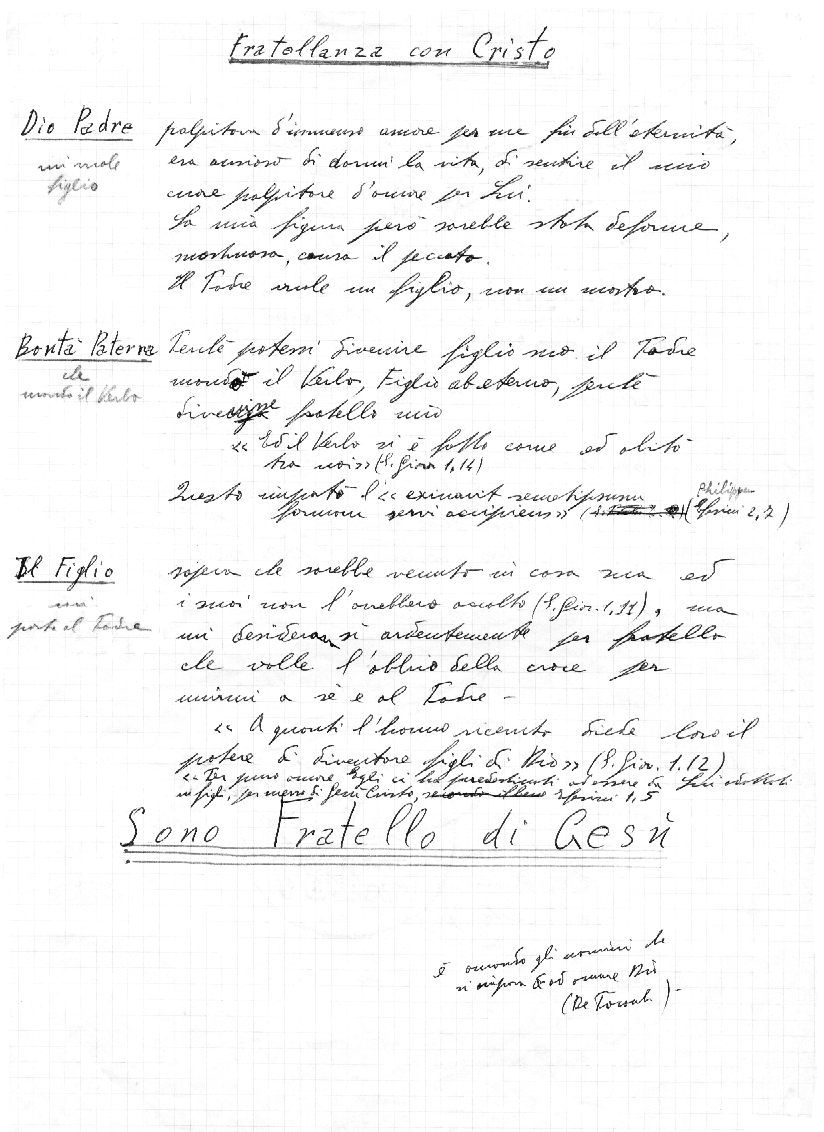 Fratellanza con Cristo
Dio Padre palpitava d'immenso amore per me fin dall'eternità,
mi vuole era ansioso di darmi la vita, di sentire il mio
figlio cuore palpitare d'amore per Lui.
La mia figura però sarebbe stata deforme,
mostruosa, causa il peccato.
Il Padre vuole un figlio, non un mostro.
Bontà Paterna Perché potessi divenire figlio suo il Padre
che mandò il Verbo, Figlio ab eterno, perché
mandò il Verbo divenisse fratello mio
« Ed il Verbo si è fatto carne ed abitò
tra noi» (S. Giov. 1,14)
Questo importò l'« exinavit semetipsum
formam servi accipiens» (Philipp. 2,7)
Il Figlio sapeva che sarebbe venuto in casa sua ed
mi i suoi non l'avrebbero accolto (S. Giov. 1,11), ma
porta al Padre mi desiderava sì ardentemente per fratello
che volle l'obbrio della croce per
unirmi a sè e al Padre -
« A quanti l'hanno ricevuto diede loro il
potere di diventare figli di Dio» (S. Giov. 1.12)
« Per puro amore Egli ci ha predestinati ad essere da Lui adottati
in figli, per mezzo di Gesù Cristo, Efesini 1,5
Sono Fratello di Gesù
è amando gli uomini che
si impara ad amare Dio
(De Foucauld) -